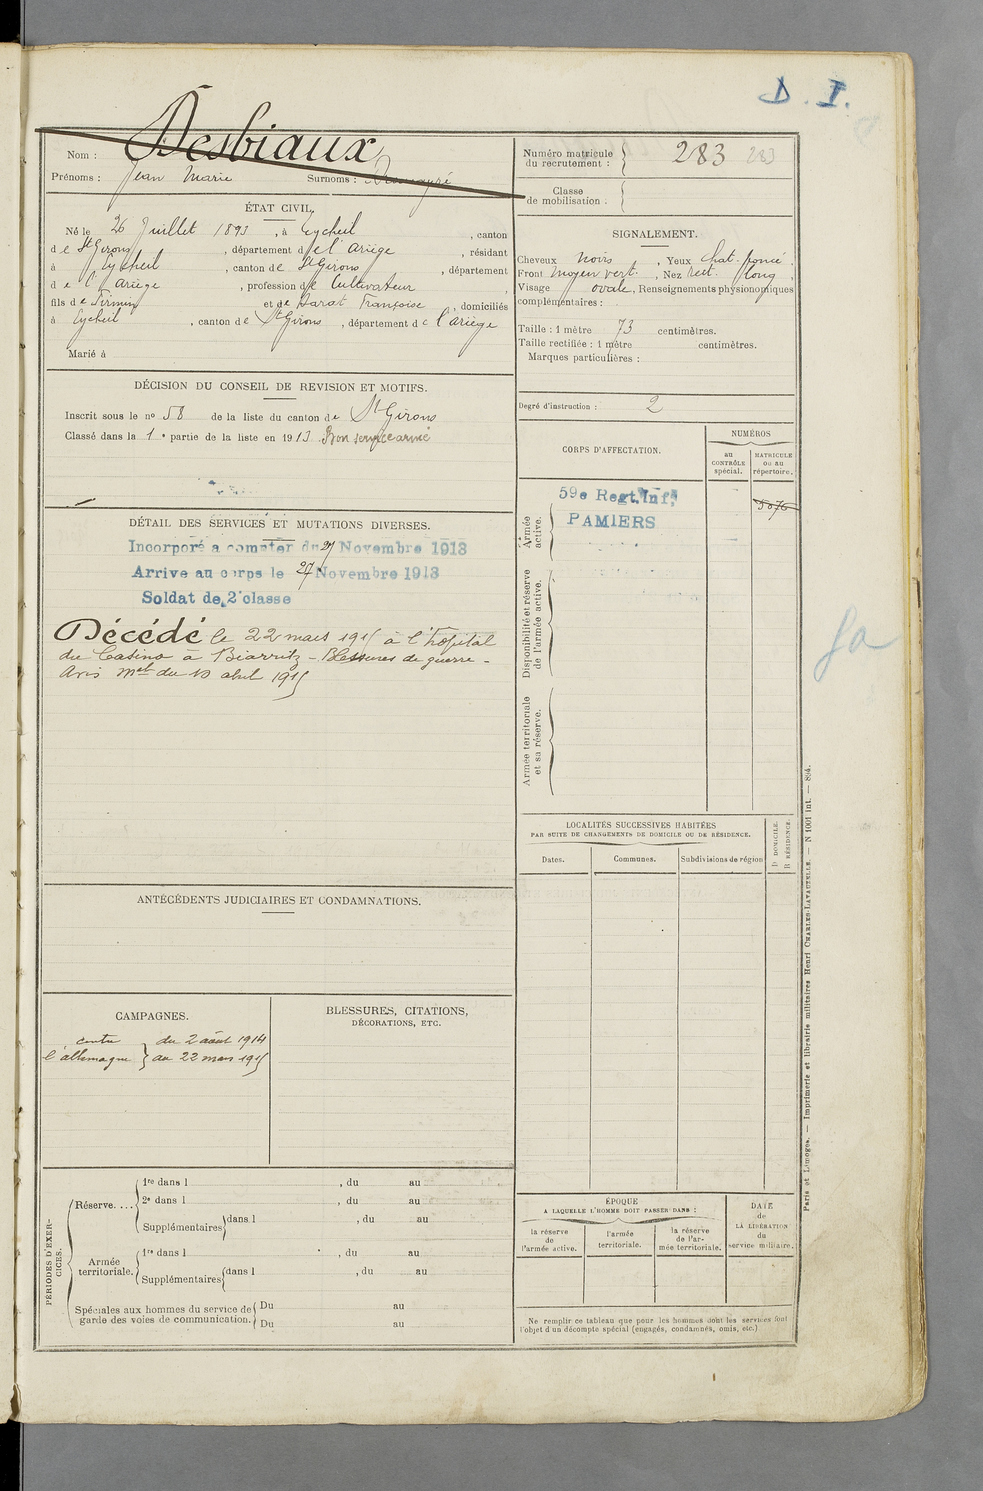 D. I.
Nom : Desbiaux
Prénoms : Jean Marie Surnoms :
ÉTAT CIVIL.
Né le 26 Juillet 1893, à Eycheil, canton
de St Girons, département de l'Ariège, résidant
à Eycheil, canton de St Girons, département
de l'Ariège, profession de Cultivateur,
fils de Firmin et de Darat Françoise, domiciliés
à Eycheil, canton de St Girons, département de l'Ariège
Marié à
DÉCISION DU CONSEIL DE REVISION ET MOTIFS.
Inscrit sous le no 58 de la liste du canton de St Girons
Classé dans la 1e partie de la liste en 1913. Bon service armé
DÉTAIL DES SERVICES ET MUTATIONS DIVERSES.
Incorporé a compter du 27 Novembre 1913
Arrive au corps le 27 Novembre 1913
Soldat de 2e classe
Décédé le 22 mars 1915 à l'hôpital
du Casino à Biarritz - Blessures de guerre -
Avis mel du 10 abril 1915
ANTÉCÉDENTS JUDICIAIRES ET CONDAMNATIONS.
CAMPAGNES.
contre } du 2 août 1914
l'allemagne } au 22 mars 1915
BLESSURES, CITATIONS,
DÉCORATIONS, ETC.
PÉRIODES D'EXER-
CICES.
Réserve....
1re dans l , du au
2e dans l , du au
Supplémentaires { dans l , du au
Armée
territoriale.
1re dans l , du au
Supplémentaires { dans l , du au
Spéciales aux hommes du service de
garde des voies de communication.
Du au
Du au
Numéro matricule
du recrutement : 283 283
Classe
de mobilisation :
SIGNALEMENT.
Cheveux noirs, Yeux chat. foncé,
Front moyen vert., Nez rect. long,
Visage ovale, Renseignements physionomiques
complémentaires :
Taille : 1 mètre 73 centimètres.
Taille rectifiée : 1 mètre centimètres.
Marques particulières :
Degré d'instruction : 2
CORPS D'AFFECTATION.
NUMÉROS
au
CONTRÔLE
spécial.
MATRICULE
ou au
répertoire.
Armée
active.
59e Regt. Inf.
PAMIERS
5076
Disponibilité et réserve
de l'armée active.
Armée territoriale
et sa réserve.
LOCALITÉS SUCCESSIVES HABITÉES
PAR SUITE DE CHANGEMENTS DE DOMICILE OU DE RÉSIDENCE.
Dates.
Communes.
Subdivisions de région
D DOMICILE.
R RÉSIDENCE.
ÉPOQUE
A LAQUELLE L'HOMME DOIT PASSER DANS :
la réserve
de
l'armée active.
l'armée
territoriale.
la réserve
de l'ar-
mée territoriale.
DATE
de
LA LIBÉRATION
du
service militaire.
Ne remplir ce tableau que pour les hommes dont les services font
l'objet d'un décompte spécial (engagés, condamnés, omis, etc.)
Paris et Limoges. — Imprimerie et librairie militaires Henri CHARLES-LAVAUZELLE. — N 1001 int. — 894.